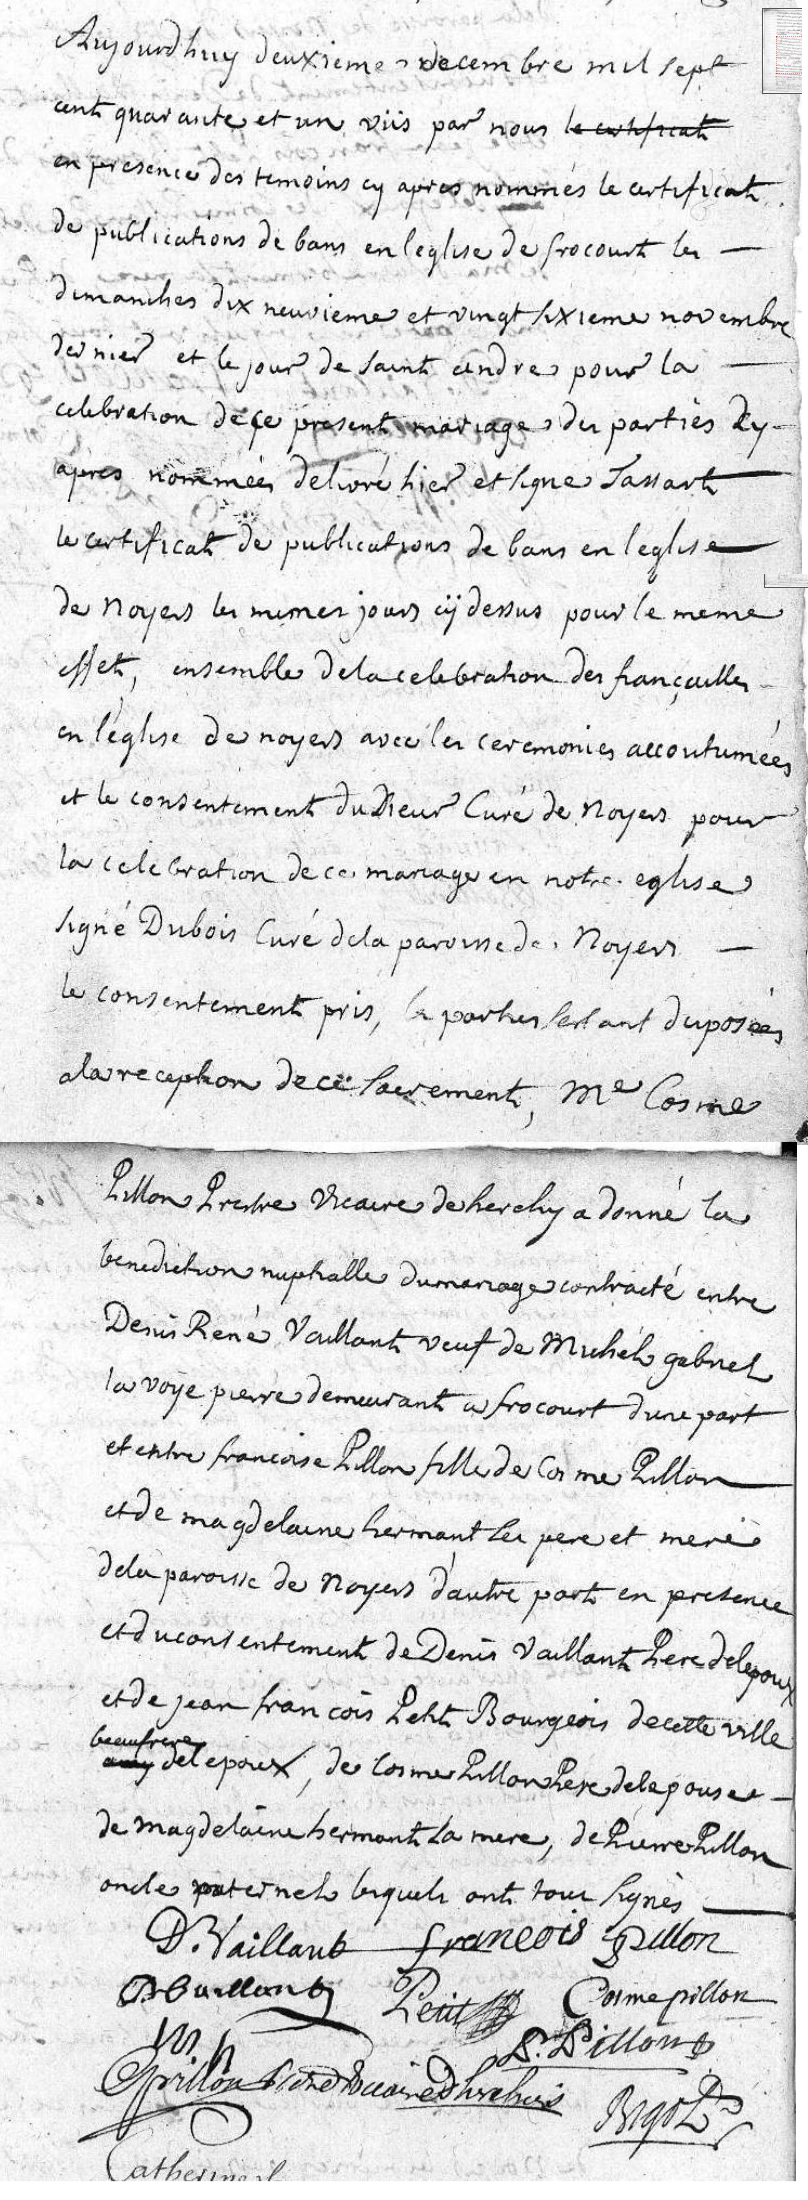 Aujourdhuy deuxieme decembre mil sept
cent quarante et un viis par nous le certificat
en presence des temoins cy apres nommés le certificat
de publications de bans en leglise de frocourt les —
dimanches dix neuvieme et vingt sixieme novembre
dernier et le jour de saint andre pour la —
celebration de ce present mariage des parties cy-
apres nommées delivré hier et signe Tassart
le certificat de publications de bans en leglise
de Noyers les memes jours cÿ dessus pour le meme
effet, ensemble de la celebration des françailles
en l'eglise de noyers avec les ceremonies accoutumées
et le consentement du Sieur Curé de Noyers pour
la celebration de ce mariage en notre eglise
signé Dubois Curé dela paroisse de Noyers —
le consentement pris, les parties s'estant disposées
a la reception de ce sacrement, Me Cosme
Pillon Prestre Vicaire de herchy a donné la
benediction nuptialle du mariage contracté entre
Denis René Vaillant veuf de Michel gabriel
la voye pierre demeurant a frocourt dune part
et entre francoise Pillon fille de Cosme Pillon
et de magdelaine hermant ses pere et mere
dela paroisse de Noyers d'autre part en presence
et du consentement de Denis Vaillant Pere delepoux
et de jean francois Petit Bourgeois decette ville
beaufrere
delepoux, de Cosme Pillon Pere delepouse
de Magdelaine hermant sa mere, de Pierre Pillon
oncle paternel lesquels ont tous signés
D. Vaillant francois pillon
Vaillant Petit Cosme pillon
P. Pillon
Cpillon vicaire
Bigot
Catherine